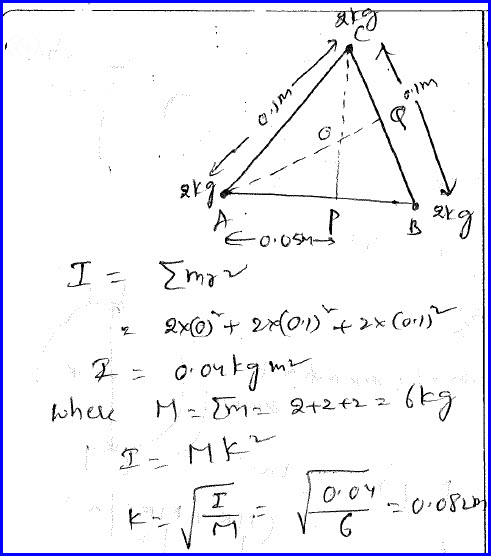 2kg
C
0.1m
0.1m
O
Q
2kg
A
P
B
2kg
0.05m
I = Σmr²
= 2×(0)² + 2×(0.1)² + 2×(0.1)²
I = 0.04 kg m²
where M = Σm = 2+2+2 = 6kg
I = MK²
K = √(I/M) = √(0.04/6) = 0.082m